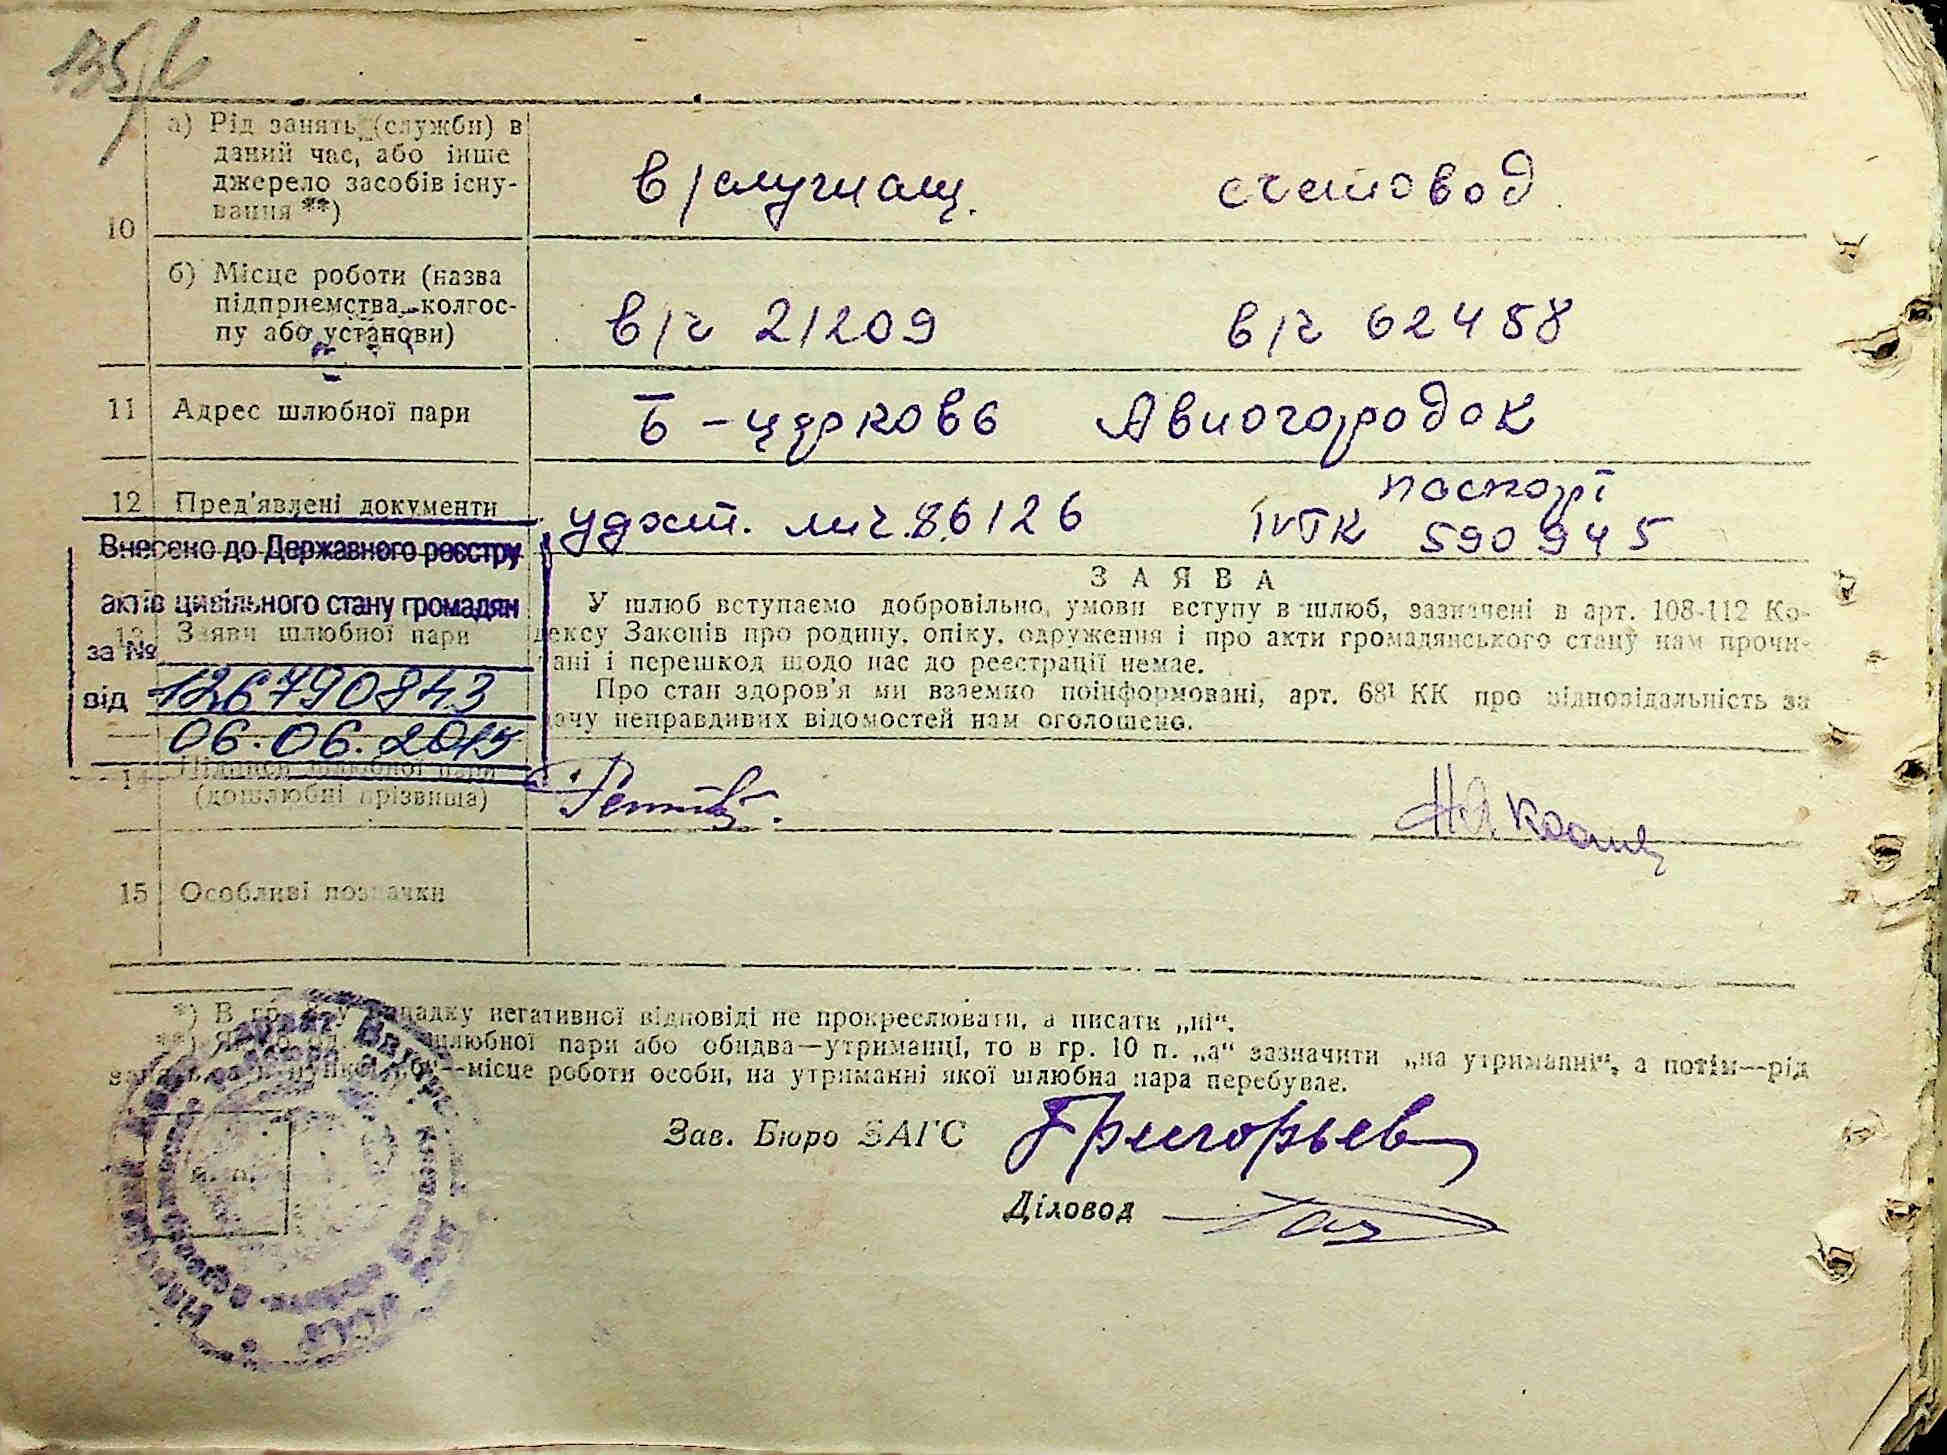 а) Рід занять (служби) в
даний час, або інше
джерело засобів існу-
вання **)
в/служащ. счетовод
10
б) Місце роботи (назва
підприємства, колгос-
пу або установи)
в/ч 21209 в/ч 62458
11 Адрес шлюбної пари
Б-церковь Авиогородок
12 Пред'явлені документи
удост. лич. 86126
паспорт
IV ТК 590945
Внесено до Державного реєстру
актів цивільного стану громадян
за №
126790843
від
06.06.2015
13 Заяви шлюбної пари
ЗАЯВА
У шлюб вступаємо добровільно, умови вступу в шлюб, зазначені в арт. 108-112 Ко-
дексу Законів про родину, опіку, одруження і про акти громадянського стану нам прочи-
тані і перешкод щодо нас до реєстрації немає.
Про стан здоров'я ми взаємно поінформовані, арт. 68¹ КК про відповідальність за
дачу неправдивих відомостей нам оголошено.
14 Підписи шлюбної пари
(дошлюбні прізвища)
15 Особливі позначки
*) В гр. у випадку негативної відповіді не прокреслювати, а писати „ні“.
**) Якщо шлюбної пари або обидва—утриманці, то в гр. 10 п. „а“ зазначити „на утриманні“, а потім—рід
місце роботи особи, на утриманні якої шлюбна пара перебуває.
Зав. Бюро ЗАГС Григорьев
Діловод